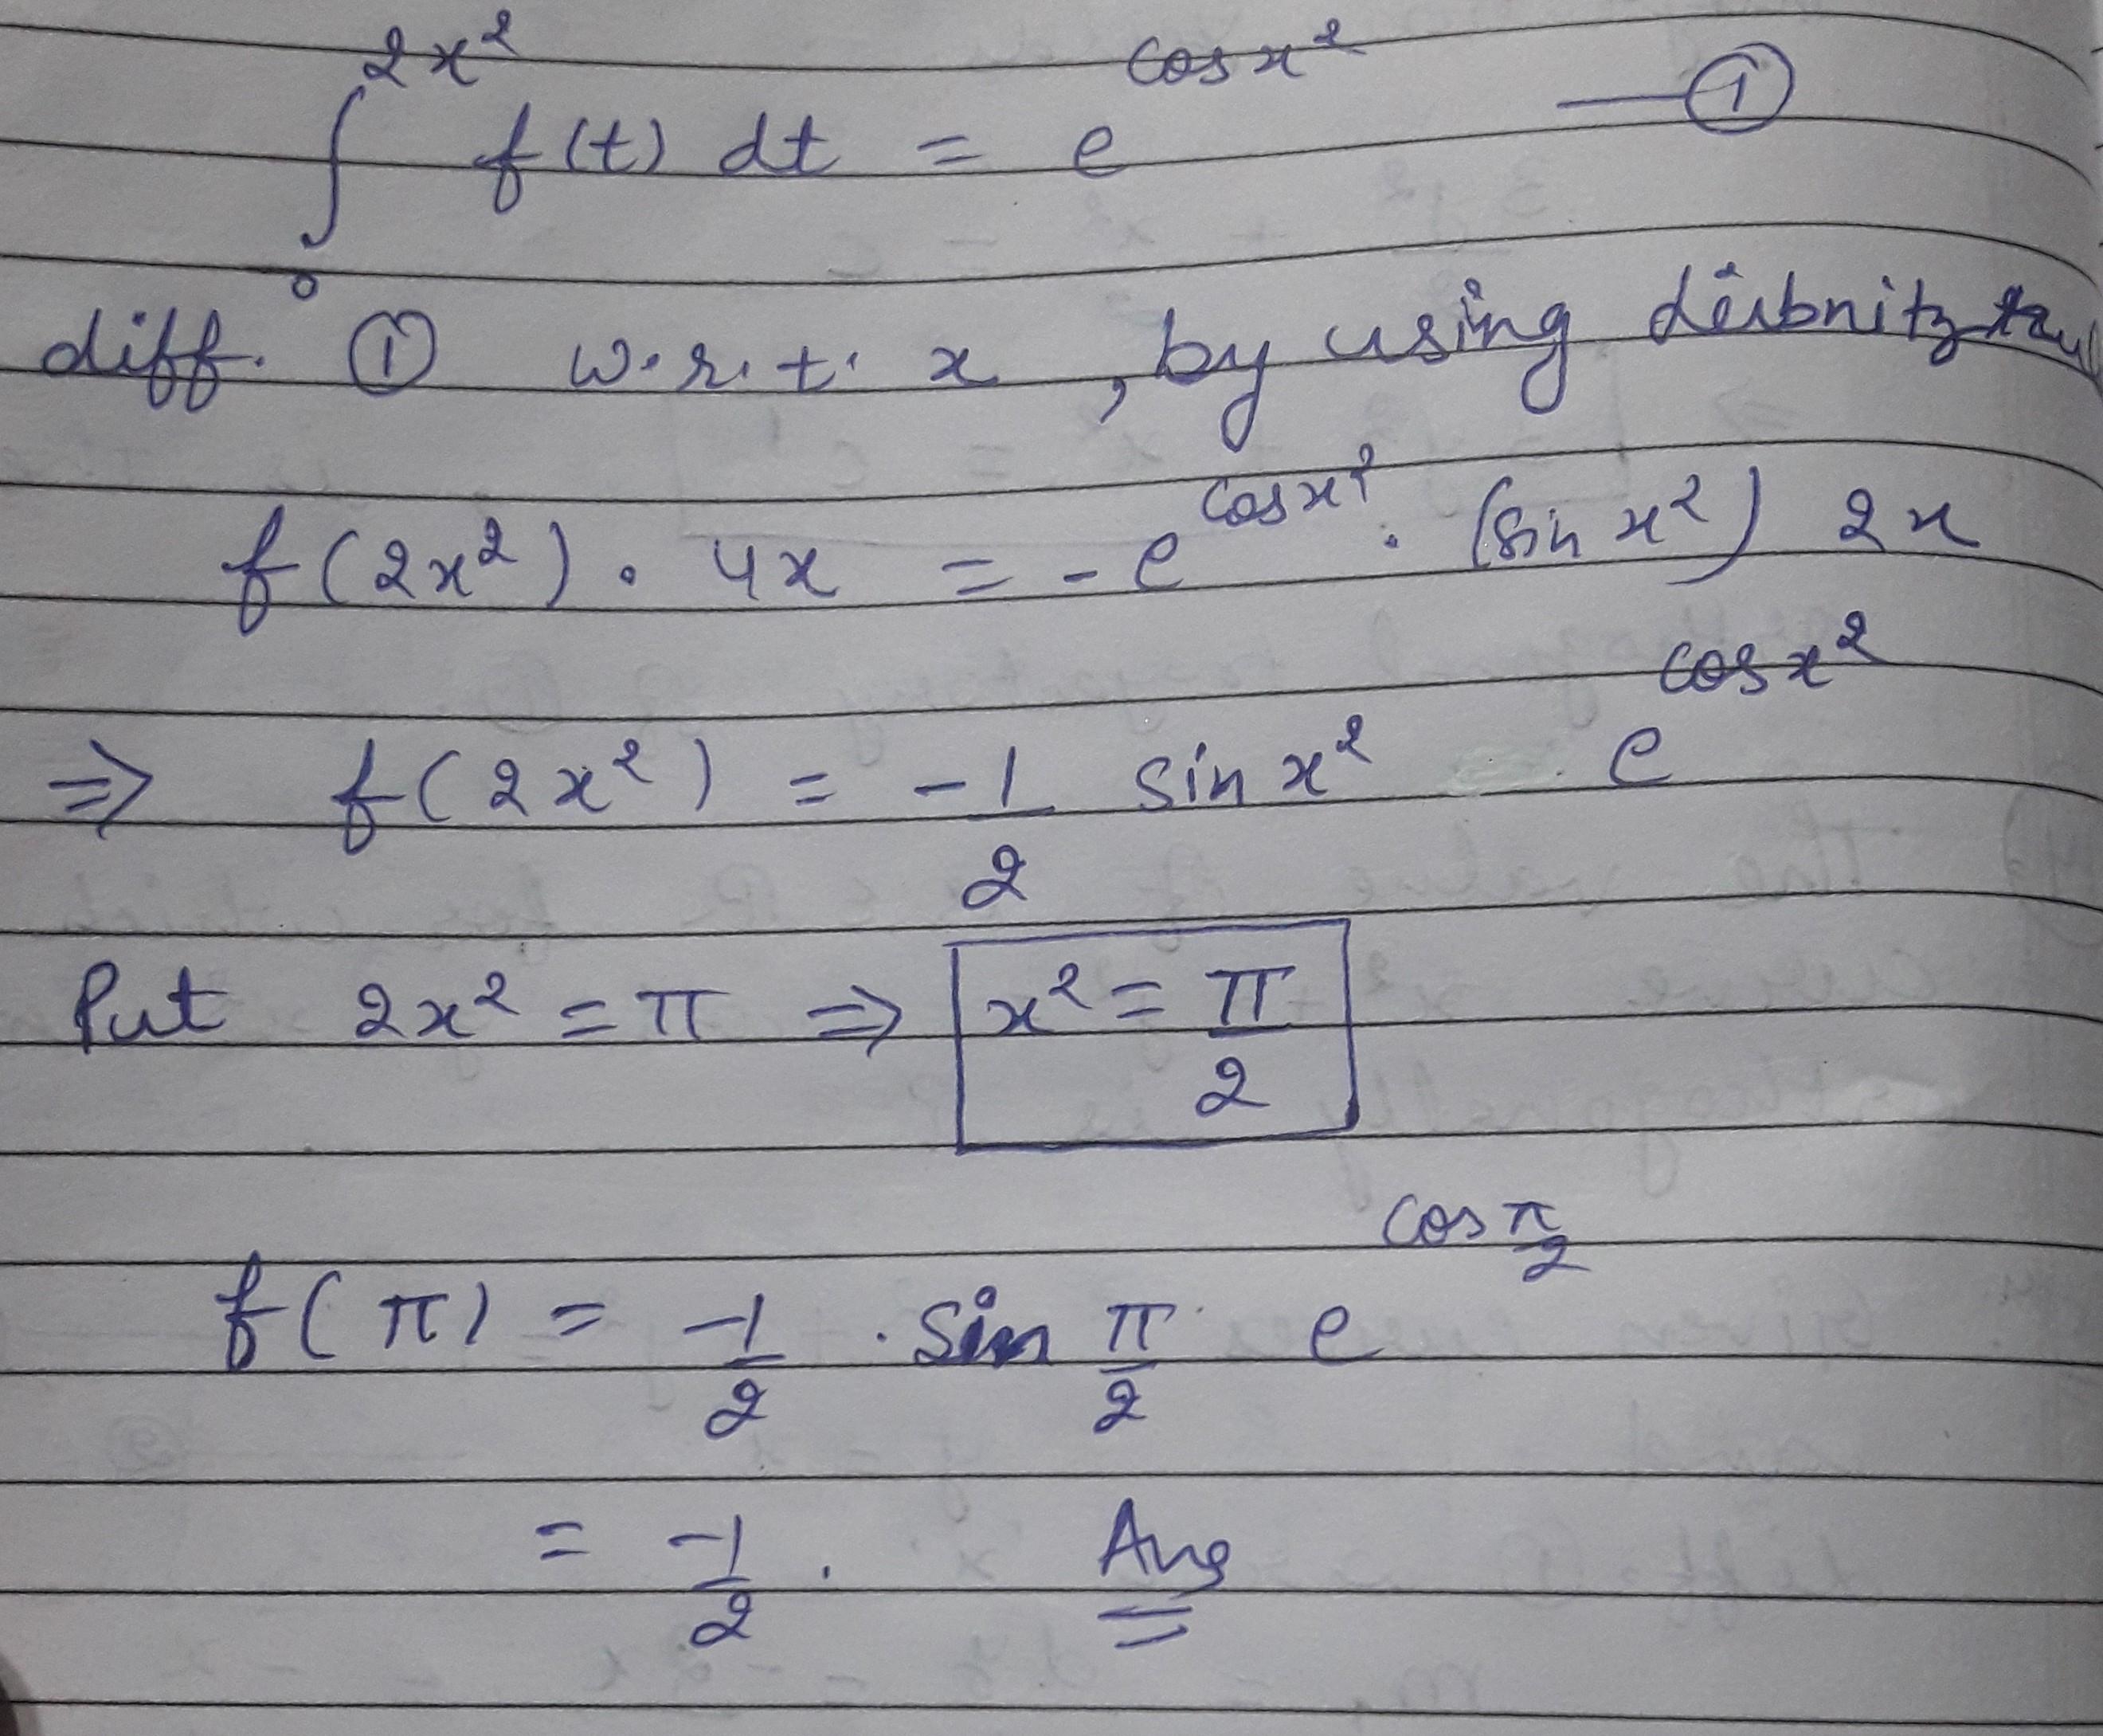 ∫₀^(2x²) f(t) dt = e^(cos x²) —①
diff. ① w.r.t. x , by using Leibnitz
f(2x²) . 4x = -e^(cos x²) . (sin x²) 2x
⇒ f(2x²) = -1/2 sin x² e^(cos x²)
Put 2x² = π ⇒ x² = π/2
f(π) = -1/2 . Sin π/2 e^(cos π/2)
= -1/2 . Ans